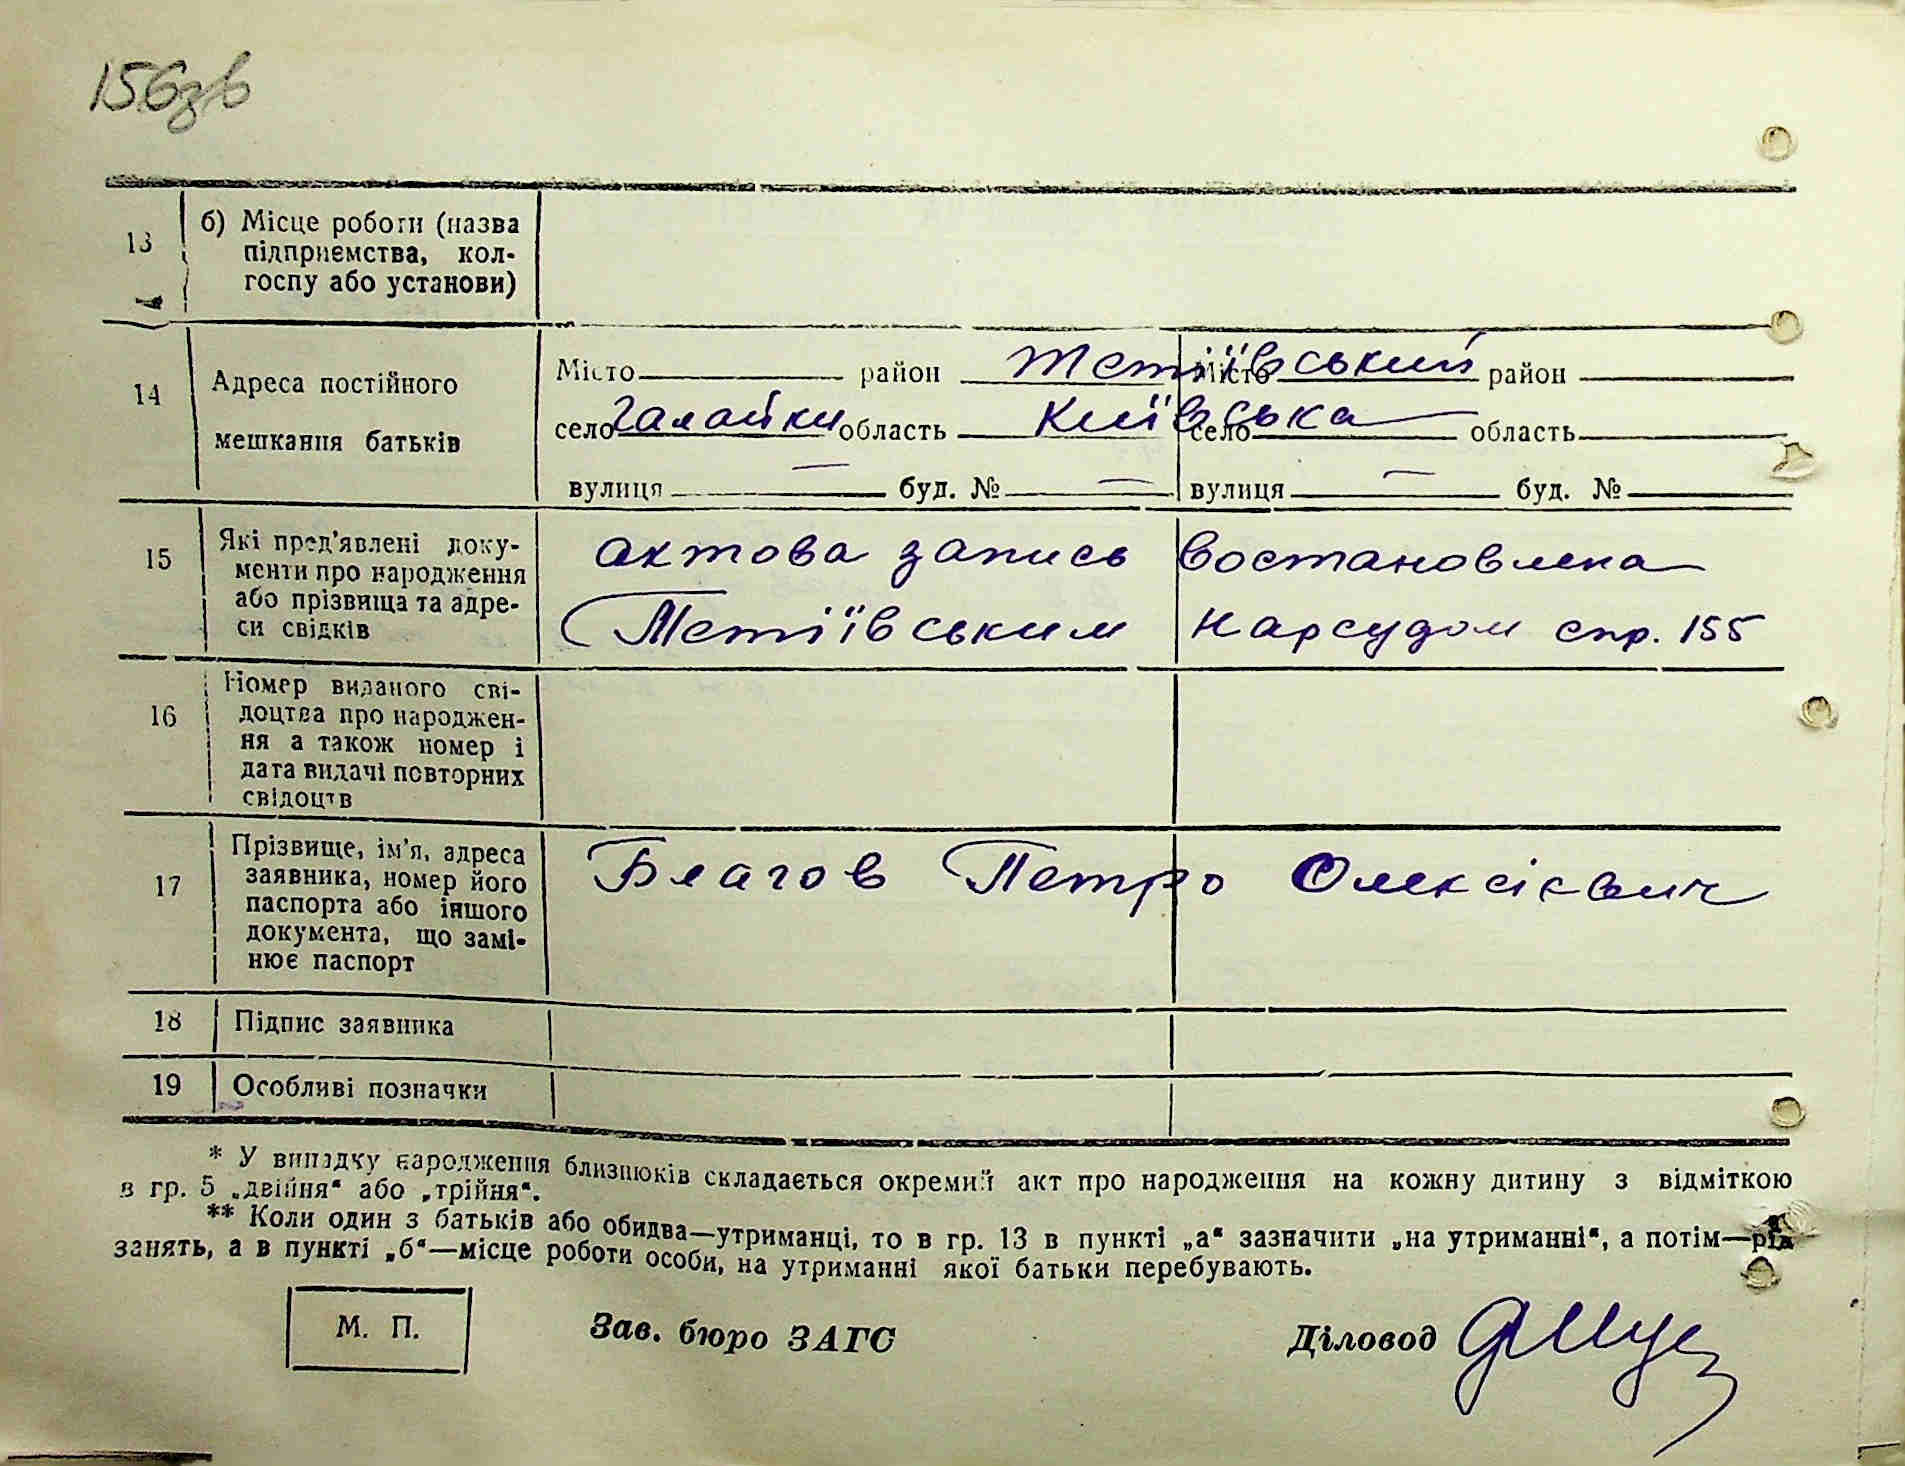 156зв
13 б) Місце роботи (назва
підприємства, кол-
госпу або установи)
14 Адреса постійного
мешкання батьків
Місто район Тетіївський Місто район
село Галайки область Київська село область
вулиця — буд. № — вулиця — буд. №
15 Які пред'явлені доку-
менти про народження
або прізвища та адре-
си свідків
актова запись востановлена
Тетіївським нарсудом спр. 155
16 Номер виданого сві-
доцтва про народжен-
ня а також номер і
дата видачі повторних
свідоцтв
17 Прізвище, ім'я, адреса
заявника, номер його
паспорта або іншого
документа, що замі-
нює паспорт
Благов Петро Олексієвич
18 Підпис заявника
19 Особливі позначки
* У випадку народження близнюків складається окремий акт про народження на кожну дитину з відміткою
в гр. 5 „двійня“ або „трійня“.
** Коли один з батьків або обидва—утриманці, то в гр. 13 в пункті „а“ зазначити „на утриманні“, а потім—рід
занять, а в пункті „б“—місце роботи особи, на утриманні якої батьки перебувають.
М. П. Зав. бюро ЗАГС Діловод